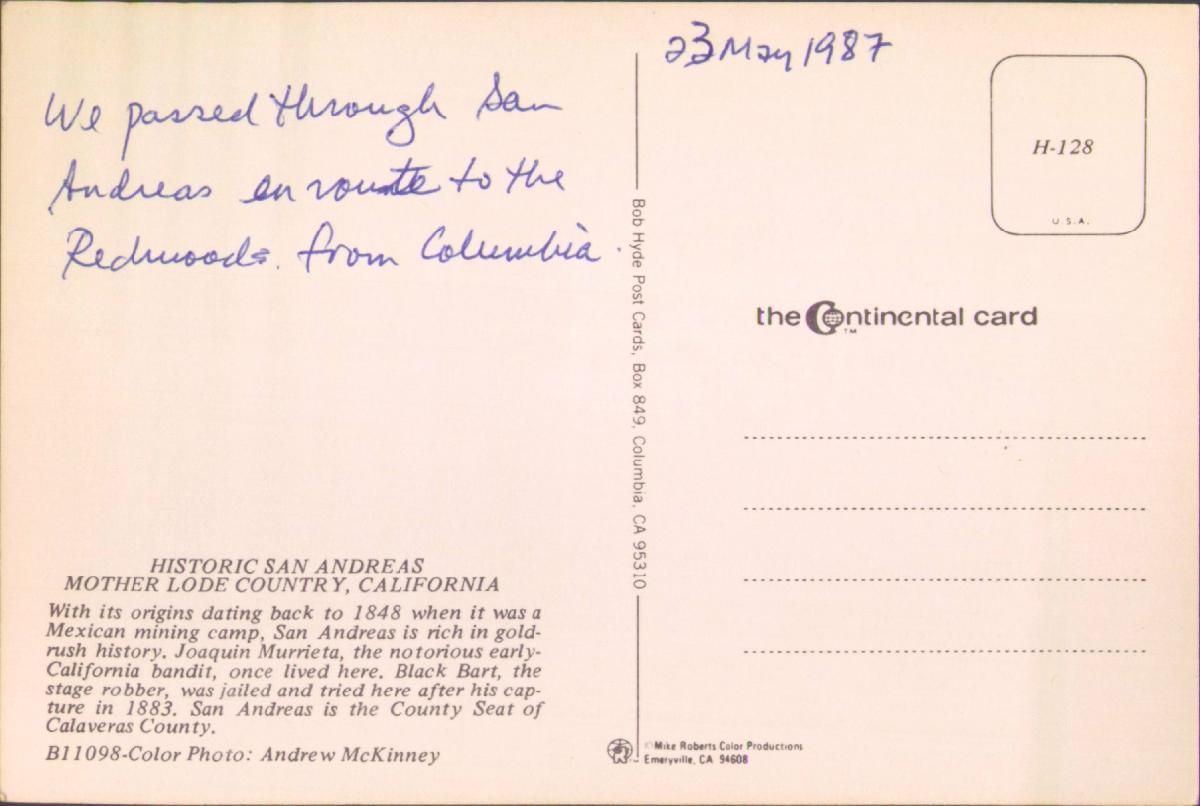 23 May 1987
We passed through San
Andreas en route to the
Redwoods. from Columbia.
HISTORIC SAN ANDREAS
MOTHER LODE COUNTRY, CALIFORNIA
With its origins dating back to 1848 when it was a
Mexican mining camp, San Andreas is rich in gold-
rush history. Joaquin Murrieta, the notorious early-
California bandit, once lived here. Black Bart, the
stage robber, was jailed and tried here after his cap-
ture in 1883. San Andreas is the County Seat of
Calaveras County.
B11098-Color Photo: Andrew McKinney
Bob Hyde Post Cards, Box 849, Columbia, CA 95310
H-128
U.S.A.
the Continental card
TM
©Mike Roberts Color Productions
Emeryville, CA 94608